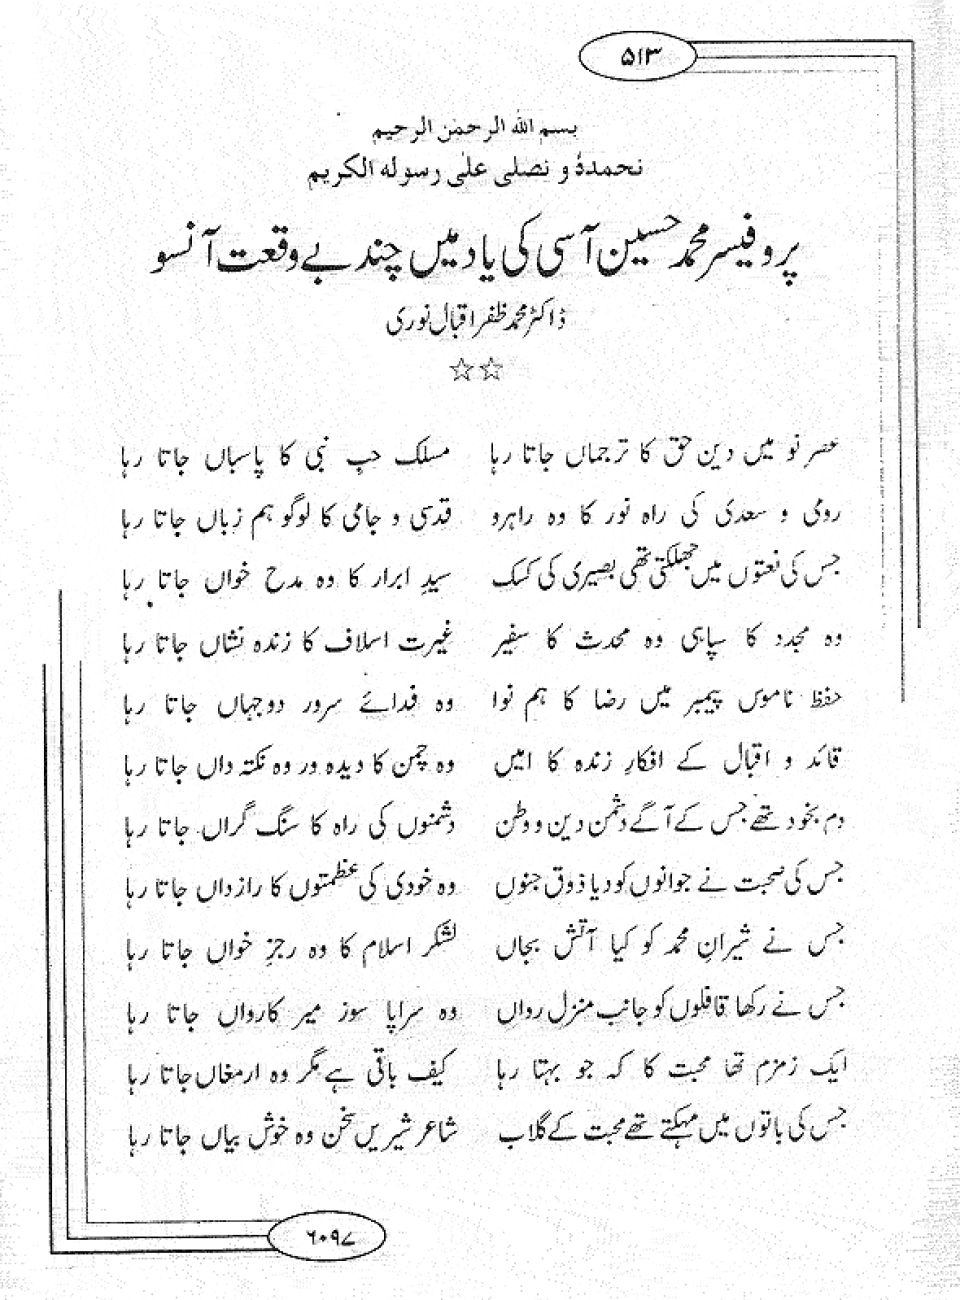 ۵۱۳
بسم اللہ الرحمٰن الرحیم
نحمدہٗ و نصلی علیٰ رسولہ الکریم
پروفیسر محمد حسین آسی کی یاد میں چند بے وقعت آنسو
ڈاکٹر محمد ظفر اقبال نوری
☆☆
عصر نو میں دین حق کا ترجماں جاتا رہا مسلک حبِ نبی کا پاسباں جاتا رہا
رومی و سعدی کی راہ نور کا وہ راہرو قدسی و جامی کا لوگو ہم زباں جاتا رہا
جس کی نعتوں میں جھلکتی تھی بصیری کی کسک سیدِ ابرار کا وہ مدح خواں جاتا رہا
وہ مجدد کا سپاہی وہ محدث کا سفیر غیرت اسلاف کا زندہ نشاں جاتا رہا
حفظ ناموس پیمبر میں رضا کا ہم نوا وہ فدائے سرور دوجہاں جاتا رہا
قائد و اقبال کے افکارِ زندہ کا امیں وہ چمن کا دیدہ ور وہ نکتہ داں جاتا رہا
دم بخود تھے جس کے آگے دشمن دین و وطن دشمنوں کی راہ کا سنگ گراں جاتا رہا
جس کی صحبت نے جوانوں کو دیا ذوق جنوں وہ خودی کی عظمتوں کا رازداں جاتا رہا
جس نے شیرانِ محمد کو کیا آتش بجاں لشکر اسلام کا وہ رجزِ خواں جاتا رہا
جس نے رکھا قافلوں کو جانب منزل رواں وہ سراپا سوز میر کارواں جاتا رہا
ایک زمزم تھا محبت کا کہ جو بہتا رہا کیف باقی ہے مگر وہ ارمغاں جاتا رہا
جس کی باتوں میں مہکتے تھے محبت کے گلاب شاعر شیریں سخن وہ خوش بیاں جاتا رہا
۶۰۹۷